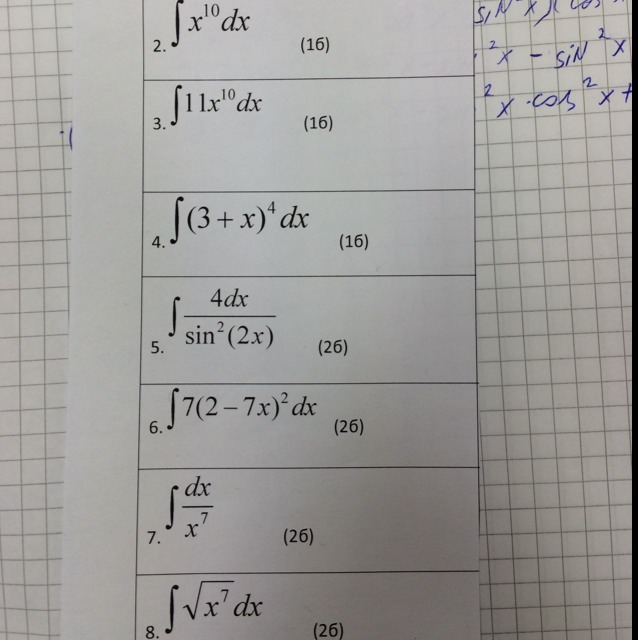 2. ∫x¹⁰dx (1б)
3. ∫11x¹⁰dx (1б)
4. ∫(3+x)⁴dx (1б)
5. ∫4dx/sin²(2x) (2б)
6. ∫7(2−7x)²dx (2б)
7. ∫dx/x⁷ (2б)
8. ∫√x⁷dx (2б)
²x - sin²x
²x · cos²x +